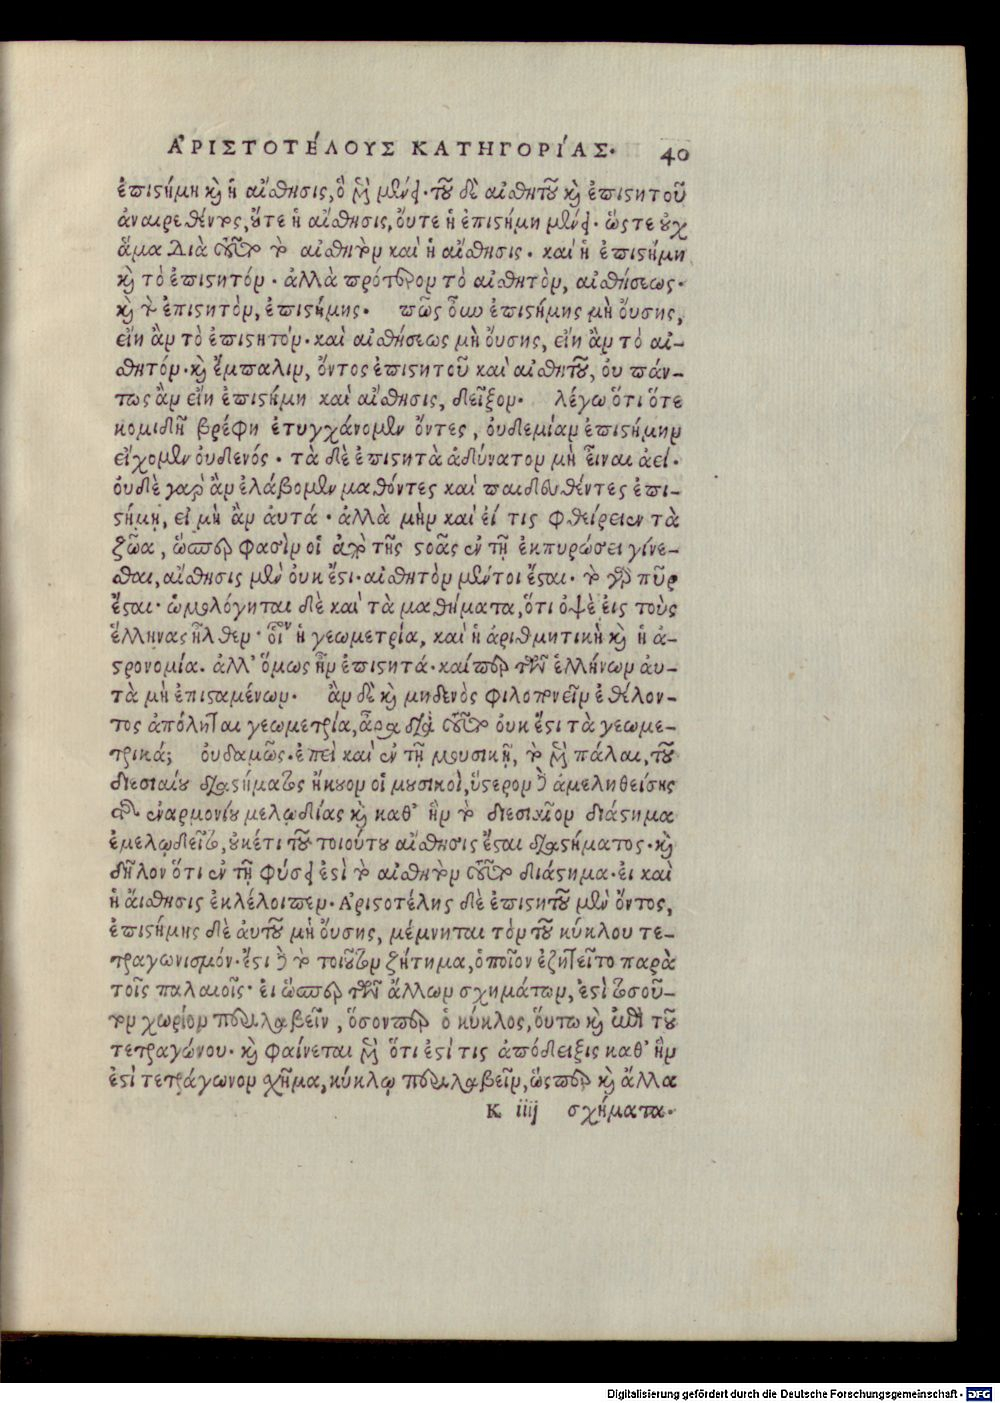 ἈΡΙΣΤΟΤΈΛΟΥΣ ΚΑΤΗΓΟΡΊΑΣ. 40
ἐπιστήμη καὶ ἡ αἴσθησις, ὃ γὰρ μένει. τοῦ δὲ αἰσθητοῦ καὶ ἐπιστητοῦ
ἀναιρεθέντος, οὔτε ἡ αἴσθησις, οὔτε ἡ ἐπιστήμη μένει. ὥστε οὐχ
ἅμα διὰ τοῦτο τὸ αἰσθητὸν καὶ ἡ αἴσθησις. καὶ ἡ ἐπιστήμη
καὶ τὸ ἐπιστητόν. ἀλλὰ πρότερον τὸ αἰσθητὸν, αἰσθήσεως.
καὶ τὸ ἐπιστητὸν, ἐπιστήμης. πῶς οὖν ἐπιστήμης μὴ οὔσης,
εἴη ἂν τὸ ἐπιστητόν. καὶ αἰσθήσεως μὴ οὔσης, εἴη ἂν τὸ αἰ-
σθητόν. καὶ ἔμπαλιν, ὄντος ἐπιστητοῦ καὶ αἰσθητοῦ, οὐ πάν-
τως ἂν εἴη ἐπιστήμη καὶ αἴσθησις, δεῖξον. λέγω ὅτι ὅτε
κομιδῆ βρέφη ἐτυγχάνομεν ὄντες, οὐδεμίαν ἐπιστήμην
εἴχομεν οὐδενός. τὰ δὲ ἐπιστητὰ ἀδύνατον μὴ εἶναι ἀεί.
οὐδὲ γὰρ ἂν ἐλάβομεν μαθόντες καὶ παιδευθέντες ἐπι-
στήμη, εἰ μὴ ἂν αὐτά. ἀλλὰ μὴν καὶ εἴ τις φθείρειεν τὰ
ζῶα, ὥσπερ φασὶν οἱ ἀπὸ τῆς στοᾶς ἐν τῆ ἐκπυρώσει γίνε-
σθαι, αἴσθησις μὲν οὐκ ἔστι. αἰσθητὸν μέντοι ἔσται. τὸ γὰρ πῦρ
ἔσται. ὡμολόγηται δὲ καὶ τὰ μαθήματα, ὅτι ὀψὲ εἰς τοὺς
ἕλληνας ἦλθεν. οἷον ἡ γεωμετρία, καὶ ἡ ἀριθμητικὴ καὶ ἡ ἀ-
στρονομία. ἀλλ' ὅμως ἦν ἐπιστητά. καίπερ τῶν ἑλλήνων αὐ-
τὰ μὴ ἐπισταμένων. ἂν δὲ καὶ μηδενὸς φιλοπονεῖν ἐθέλον-
τος ἀπόληται γεωμετρία, ἆρα διὰ τοῦτο οὐκ ἔστι τὰ γεωμε-
τρικά; οὐδαμῶς. ἐπεὶ καὶ ἐν τῆ μουσικῆ, τὸ γὰρ πάλαι, τοῦ
διεσιαίου διαστήματος ἤκουον οἱ μουσικοὶ, ὕστερον δὲ ἀμεληθείσης
τῆς ἐναρμονίου μελῳδίας καὶ καθ' ἣν τὸ διεσιαῖον διάστημα
ἐμελῳδεῖτο, οὐκέτι τοῦ τοιούτου αἴσθησις ἔσται διαστήματος. καὶ
δῆλον ὅτι ἐν τῆ φύσει ἐστὶ τὸ αἰσθητὸν τοῦτο διάστημα. εἰ καὶ
ἡ αἴσθησις ἐκλέλοιπεν. Ἀριστοτέλης δὲ ἐπιστητοῦ μὲν ὄντος,
ἐπιστήμης δὲ αὐτοῦ μὴ οὔσης, μέμνηται τὸν τοῦ κύκλου τε-
τραγωνισμόν. ἔστι δὲ τὸ τοιοῦτον ζήτημα, ὁποῖον ἐζητεῖτο παρὰ
τοῖς παλαιοῖς. εἰ ὥσπερ τῶν ἄλλων σχημάτων, ἐστὶ τοσοῦ-
τον χωρίον περιλαβεῖν, ὅσονπερ ὁ κύκλος, οὕτω καὶ ἐπὶ τοῦ
τετραγώνου. καὶ φαίνεται γὰρ ὅτι ἐστί τις ἀπόδειξις καθ' ἣν
ἐστὶ τετράγωνον σχῆμα, κύκλῳ περιλαβεῖν, ὥσπερ καὶ ἄλλα
K iiij σχήματα.
Digitalisierung gefördert durch die Deutsche Forschungsgemeinschaft - DFG